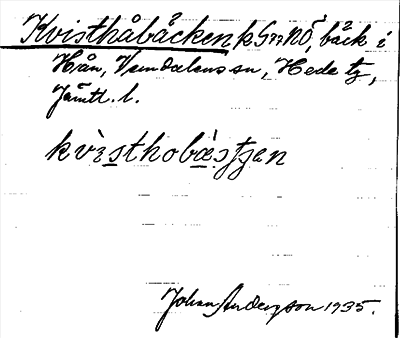 Kvisthåbäcken k Gr NÖ, bäck i
Hån, Vemdalens sn, Hede tg,
Jämtl. l.
kvìsthobä̀sʃʃen
Johan Anderson 1935.